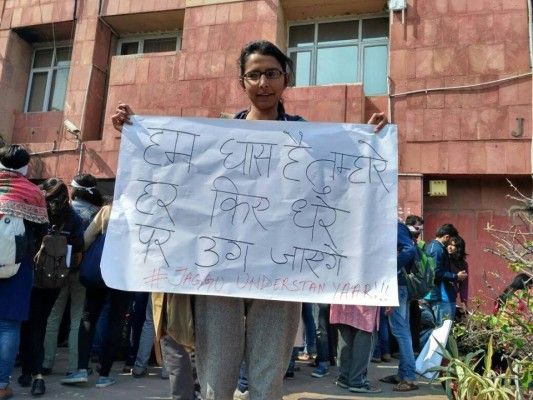 हम घास है तुम्हारे
हर किए धरे
पर उग जाएगें
# JAGGU UNDERSTAN YAAR!!!
J